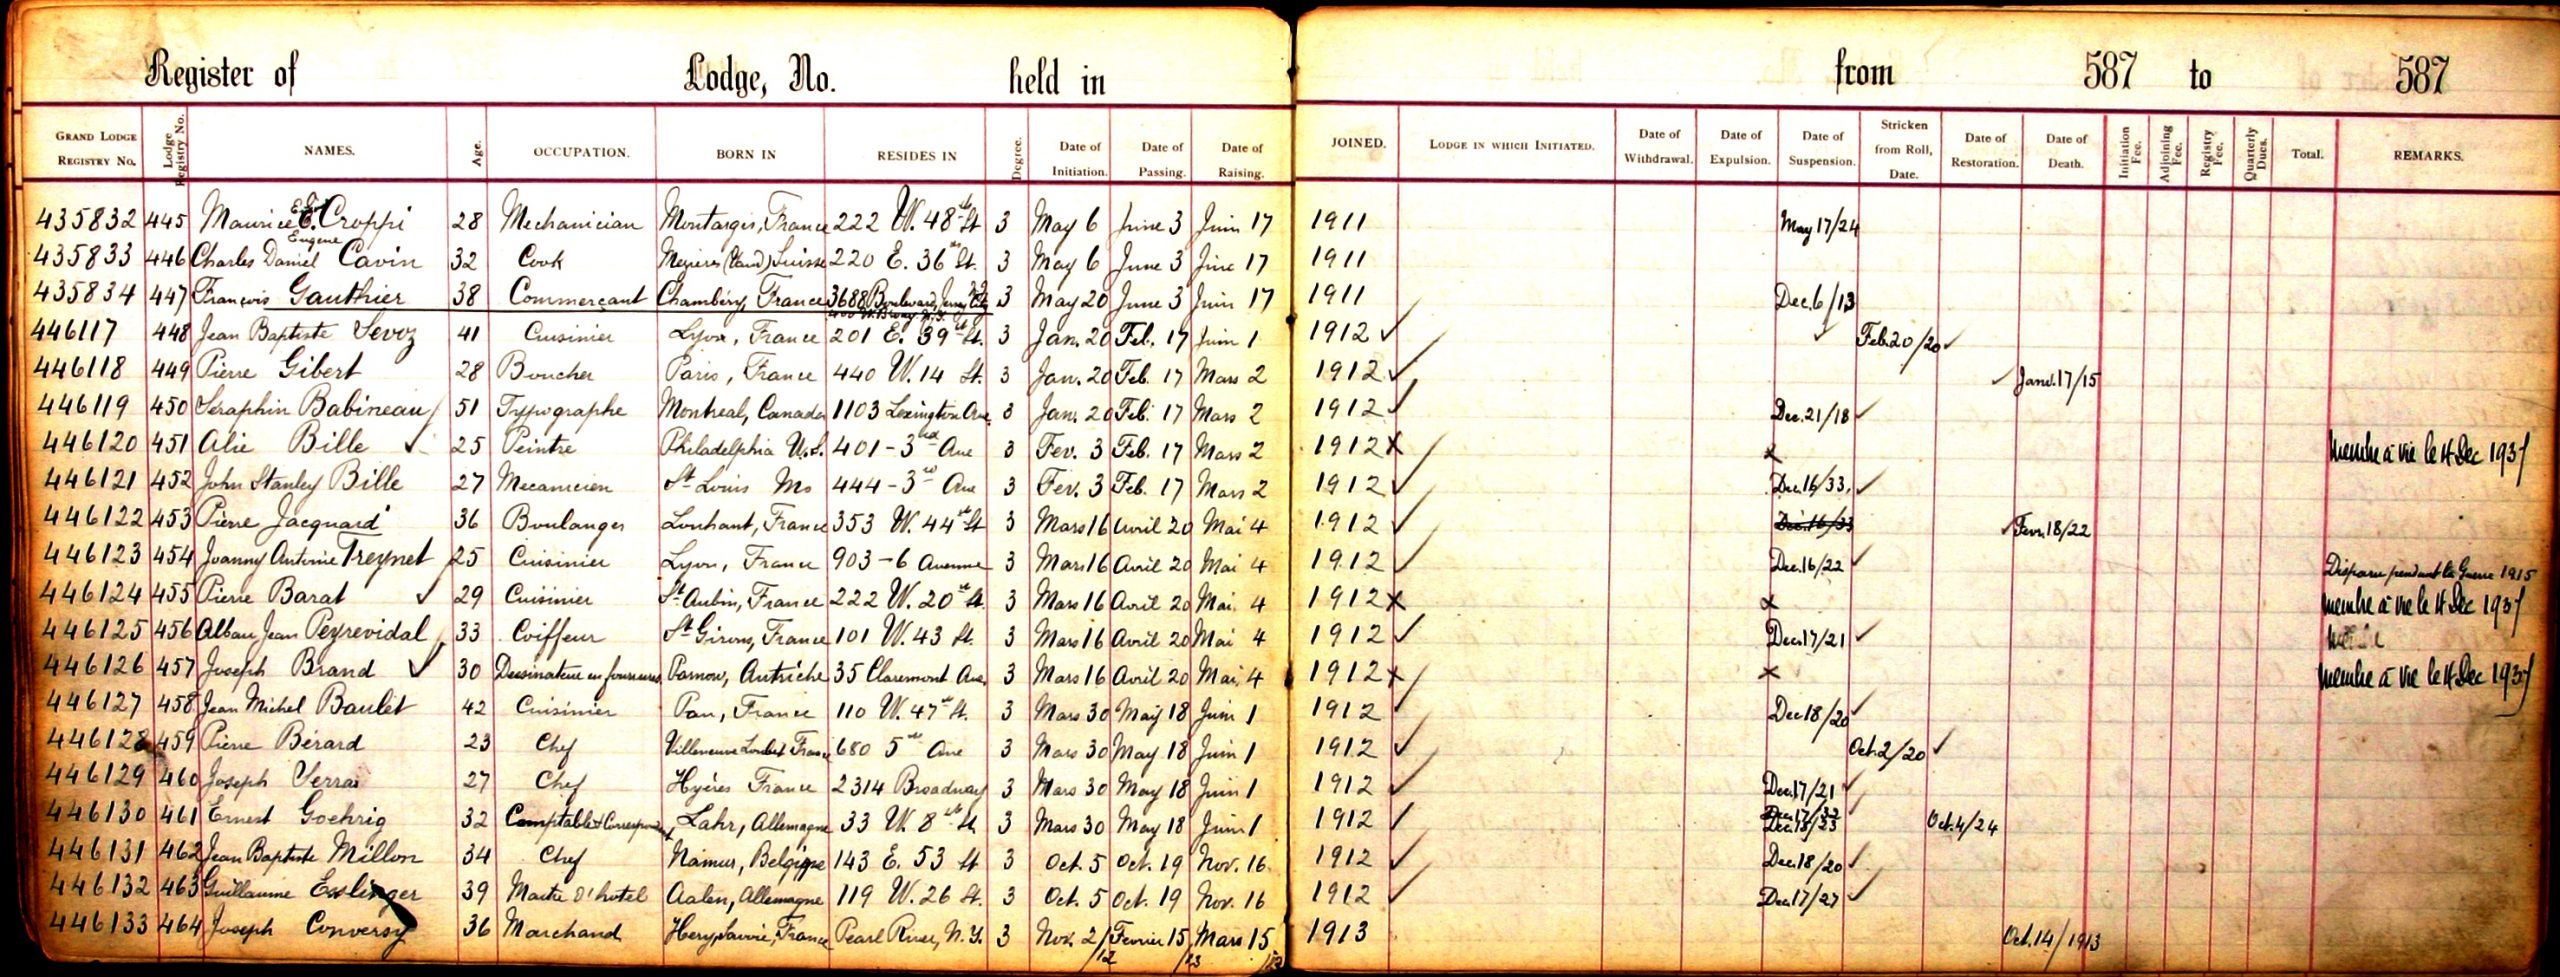 Register of Lodge, No. held in from 587 to 587
GRAND LODGE REGISTRY NO. Lodge Registry No. NAMES. Age. OCCUPATION. BORN IN RESIDES IN Degree. Date of Initiation. Date of Passing. Date of Raising. JOINED. LODGE IN WHICH INITIATED. Date of Withdrawal. Date of Expulsion. Date of Suspension. Stricken from Roll, Date. Date of Restoration. Date of Death. Initiation Fee. Adjoining Fee. Registry Fee. Quarterly Dues. Total. REMARKS.
435832 445 Maurice E. Croppi 28 Mechanician Montargis, France 222 W. 48th St 3 May 6 June 3 Juin 17 1911 May 17/24
Eugene
435833 446 Charles Daniel Cavin 32 Cook Mezieres (Vaud) Suisse 220 E. 36th St. 3 May 6 June 3 June 17 1911
435834 447 François Gauthier 38 Commerçant Chambéry, France 3688 Boulevard, Jersey City N.J. 3 May 20 June 3 Juin 17 1911 Dec. 6/13
446117 448 Jean Baptiste Sevoz 41 Cuisinier Lyon, France 201 E. 39th St. 3 Jan. 20 Feb. 17 Juin 1 1912 Feb. 20/20
446118 449 Pierre Gibert 28 Boucher Paris, France 440 W. 14 St. 3 Jan. 20 Feb. 17 Mars 2 1912 Janv. 17/15
446119 450 Seraphin Babineau 51 Typographe Montreal, Canada 1103 Lexington Ave. 3 Jan. 20 Feb. 17 Mars 2 1912 Dec. 21/18
446120 451 Alie Bille 25 Peintre Philadelphia U.S. 401 - 3rd Ave 3 Fev. 3 Feb. 17 Mars 2 1912 x x Membre à vie le 4 Dec 1937
446121 452 John Stanley Bille 27 Mecanicien St Louis Mo 444 - 3rd Ave 3 Fev. 3 Feb. 17 Mars 2 1912 Dec. 16/33.
446122 453 Pierre Jacquard 36 Boulanger Louhant, France 353 W. 44th St 3 Mars 16 Avril 20 Mai 4 1912 Dec. 16/33 Fevr. 18/22
446123 454 Joanny Antoine Treynet 25 Cuisinier Lyon, France 903 - 6 Avenue 3 Mars 16 Avril 20 Mai 4 1912 Dec. 16/22 Disparu pendant la Guerre 1915
446124 455 Pierre Barat 29 Cuisinier St Aubin, France 222 W. 20th St. 3 Mars 16 Avril 20 Mai 4 1912 x x Membre à vie le 4 Dec 1937
446125 456 Alban Jean Peyrevidal 33 Coiffeur St Girons, France 101 W. 43 St. 3 Mars 16 Avril 20 Mai 4 1912 Dec. 17/21
446126 457 Joseph Brand 30 Dessinateur en fourrures Parnow, Autriche 35 Claremont Ave. 3 Mars 16 Avril 20 Mai 4 1912 x x Membre à vie le 4 Dec 1937
446127 458 Jean Michel Baulet 42 Cuisinier Pau, France 110 W. 47th St. 3 Mars 30 May 18 Juin 1 1912 Dec 18/20
446128 459 Pierre Bérard 23 Chef Villeneuve Loubet France 680 5th Ave 3 Mars 30 May 18 Juin 1 1912 Oct. 2/20
446129 460 Joseph Serrai 27 Chef Hyéres France 2314 Broadway 3 Mars 30 May 18 Juin 1 1912 Dec. 17/21
446130 461 Ernest Goehrig 32 Comptable & Correspondent Lahr, Allemagne 33 W. 8th St. 3 Mars 30 May 18 Juin 1 1912 Oct. 4/24
446131 462 Jean Baptiste Millon 34 Chef Namur, Belgique 143 E. 53 St 3 Oct. 5 Oct. 19 Nov. 16. 1912 Dec. 18/20
446132 463 Guillaume Esslinger 39 Maitre d'hotel Aalen, Allemagne 119 W. 26 St. 3 Oct. 5 Oct. 19 Nov. 16 1912 Dec. 17/27
446133 464 Joseph Conversy 36 Marchand Hery, Savoie, France Pearl River, N.Y. 3 Nov. 2/12 Fevrier 15/13 Mars 15/13 1913 Oct. 14/1913